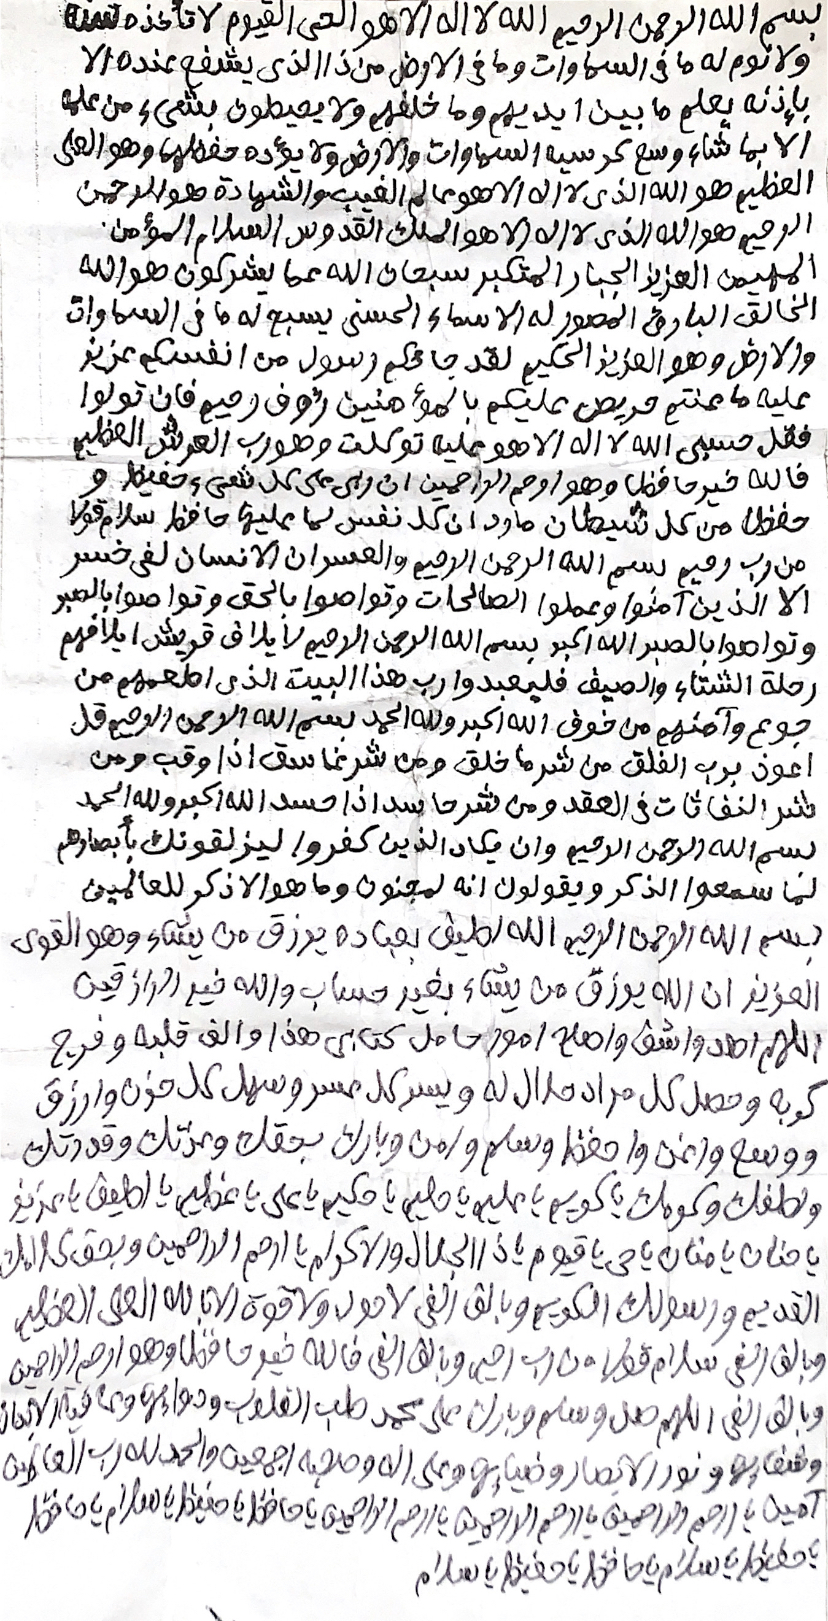 بسم الله الرحمن الرحيم الله لا اله الا هو الحي القيوم لا تأخذه سنة
ولا نوم له ما في السماوات وما في الارض من ذا الذي يشفع عنده الا
بإذنه يعلم ما بين ايديهم وما خلفهم ولا يحيطون بشيء من علمه
الا بما شاء وسع كرسيه السماوات والارض ولا يؤده حفظهما وهو العلي
العظيم هو الله الذي لا اله الا هو عالم الغيب والشهادة هو الرحمن
الرحيم هو الله الذي لا اله الا هو الملك القدوس السلام المؤمن
المهيمن العزيز الجبار المتكبر سبحان الله عما يشركون هو الله
الخالق البارئ المصور له الاسماء الحسنى يسبح له ما في السماوات
والارض وهو العزيز الحكيم لقد جاءكم رسول من انفسكم عزيز
عليه ما عنتم حريص عليكم بالمؤمنين رؤوف رحيم فان تولوا
فقل حسبي الله لا اله الا هو عليه توكلت وهو رب العرش العظيم
فالله خير حافظا وهو ارحم الراحمين ان ربي على كل شيء حفيظ و
حفظا من كل شيطان مارد ان كل نفس لما عليها حافظ سلام قولا
من رب رحيم بسم الله الرحمن الرحيم والعصر ان الانسان لفي خسر
الا الذين آمنوا وعملوا الصالحات وتواصوا بالحق وتواصوا بالصبر
وتواصوا بالصبر الله اكبر بسم الله الرحمن الرحيم لايلاف قريش ايلافهم
رحلة الشتاء والصيف فليعبدوا رب هذا البيت الذي اطعمهم من
جوع وآمنهم من خوف الله اكبر ولله الحمد بسم الله الرحمن الرحيم قل
اعوذ برب الفلق من شر ما خلق ومن شر غاسق اذا وقب ومن
شر النفاثات في العقد ومن شر حاسد اذا حسد الله اكبر ولله الحمد
بسم الله الرحمن الرحيم وان يكاد الذين كفروا ليزلقونك بأبصارهم
لما سمعوا الذكر ويقولون انه لمجنون وما هو الا ذكر للعالمين
بسم الله الرحمن الرحيم الله لطيف بعباده يرزق من يشاء وهو القوي
العزيز ان الله يرزق من يشاء بغير حساب والله خير الرازقين
اللهم اهد واشف واصلح امور حامل كتابي هذا والف قلبه وفرج
كربه وحصل كل مراد حلال له ويسر كل عسر وسهل كل حزن وارزق
ووسع واغن واحفظ وسلم وامن وبارك بحقك وعزتك وقدرتك
ولطفك وكرمك يا كريم يا عليم يا حليم يا حكيم يا علي يا عظيم يا لطيف يا عزيز
يا حنان يا منان يا حي يا قيوم يا ذا الجلال والاكرام يا ارحم الراحمين وبحق كلامك
القديم ورسولك الكريم وبالف الفي لا حول ولا قوة الا بالله العلي العظيم
وبالف الفي سلام قولا من رب رحيم وبالف الفي فالله خير حافظا وهو ارحم الراحمين
وبالف الفي اللهم صل وسلم وبارك على محمد طب القلوب ودوائها وعافية الابدان
وشفائها ونور الابصار وضيائها وعلى اله وصحبه اجمعين والحمد لله رب العالمين
آمين يا ارحم الراحمين يا ارحم الراحمين يا ارحم الراحمين يا حافظ يا حفيظ يا سلام يا حافظ
يا حفيظ يا سلام يا حافظ يا حفيظ يا سلام